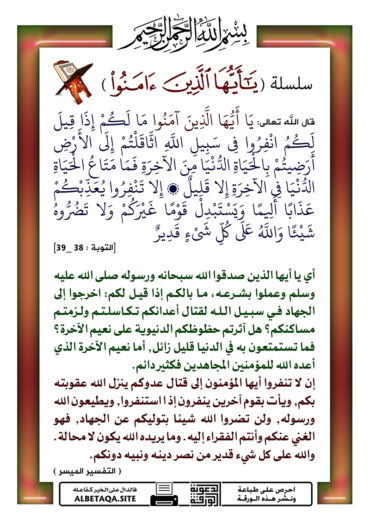 بسم الله الرحمن الرحيم
سلسلة ( يَـٰٓأَيُّهَا ٱلَّذِينَ ءَامَنُوا۟ )
قال الله تعالى: يَا أَيُّهَا الَّذِينَ آمَنُوا مَا لَكُمْ إِذَا قِيلَ
لَكُمُ انْفِرُوا فِي سَبِيلِ اللَّهِ اثَّاقَلْتُمْ إِلَى الأَرْضِ
أَرَضِيتُمْ بِالْحَيَاةِ الدُّنْيَا مِنَ الآخِرَةِ فَمَا مَتَاعُ الْحَيَاةِ
الدُّنْيَا فِي الآخِرَةِ إِلا قَلِيلٌ ۞ إِلا تَنْفِرُوا يُعَذِّبْكُمْ
عَذَابًا أَلِيمًا وَيَسْتَبْدِلْ قَوْمًا غَيْرَكُمْ وَلا تَضُرُّوهُ
شَيْئًا وَاللَّهُ عَلَى كُلِّ شَيْءٍ قَدِيرٌ
[التوبة : 38 _39]
أي يا أيها الذين صدقوا الله سبحانه ورسوله صلى الله عليه
وسلم وعملوا بشرعه، ما بالكم إذا قيل لكم: اخرجوا إلى
الجهاد في سبيل الله لقتال أعدائكم تكاسلتم ولزمتم
مساكنكم؟ هل آثرتم حظوظكم الدنيوية على نعيم الآخرة؟
فما تستمتعون به في الدنيا قليل زائل, أما نعيم الآخرة الذي
أعده الله للمؤمنين المجاهدين فكثير دائم.
إن لا تنفروا أيها المؤمنون إلى قتال عدوكم ينزل الله عقوبته
بكم, ويأت بقوم آخرين ينفرون إذا استنفروا, ويطيعون الله
ورسوله, ولن تضروا الله شيئا بتوليكم عن الجهاد, فهو
الغني عنكم وأنتم الفقراء إليه. وما يريده الله يكون لا محالة.
والله على كل شيء قدير من نصر دينه ونبيه دونكم.
( التفسير الميسر )
احرص على طباعة
ونشر هذه الورقة
الورقة الدعوية
فالدال على الخير كفاعله
ALBETAQA.SITE